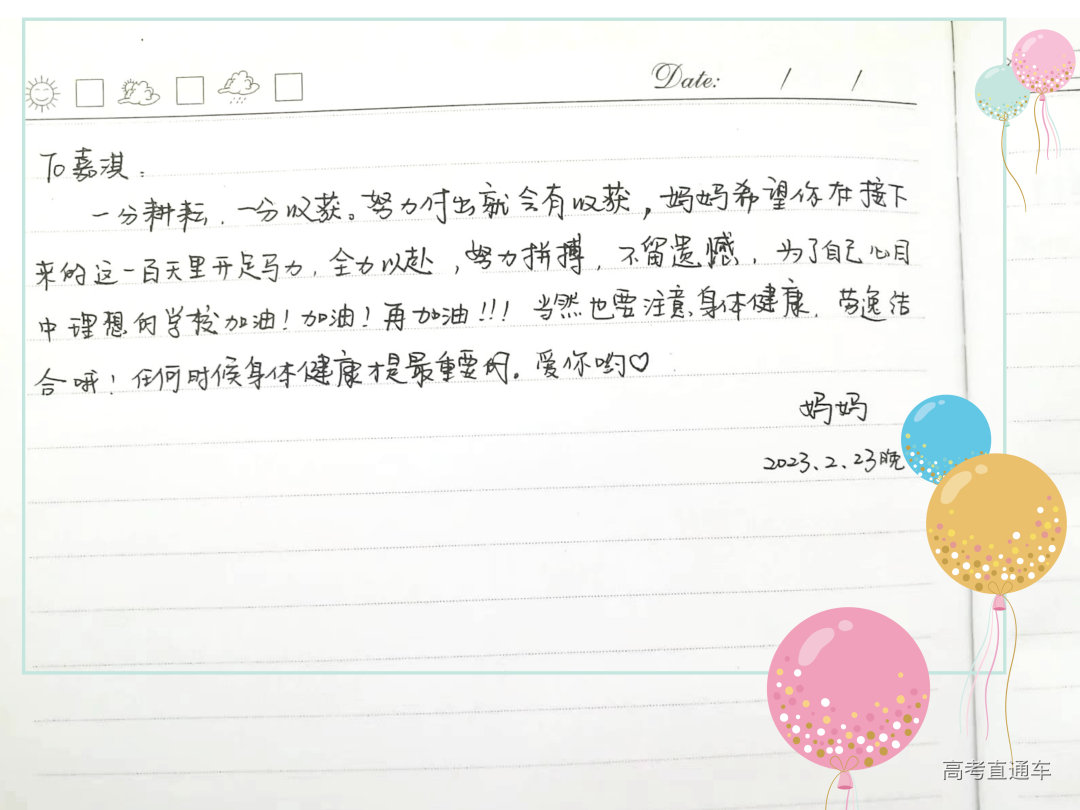 Date: / /
To 嘉淇：
一分耕耘，一分收获。努力付出就会有收获，妈妈希望你在接下
来的这一百天里开足马力，全力以赴，努力拼搏，不留遗憾，为了自己心目
中理想的学校加油！加油！再加油！！！当然也要注意身体健康，劳逸结
合哦！任何时候身体健康才是最重要的。爱你哟♡
妈妈
2023.2.23晚
高考直通车